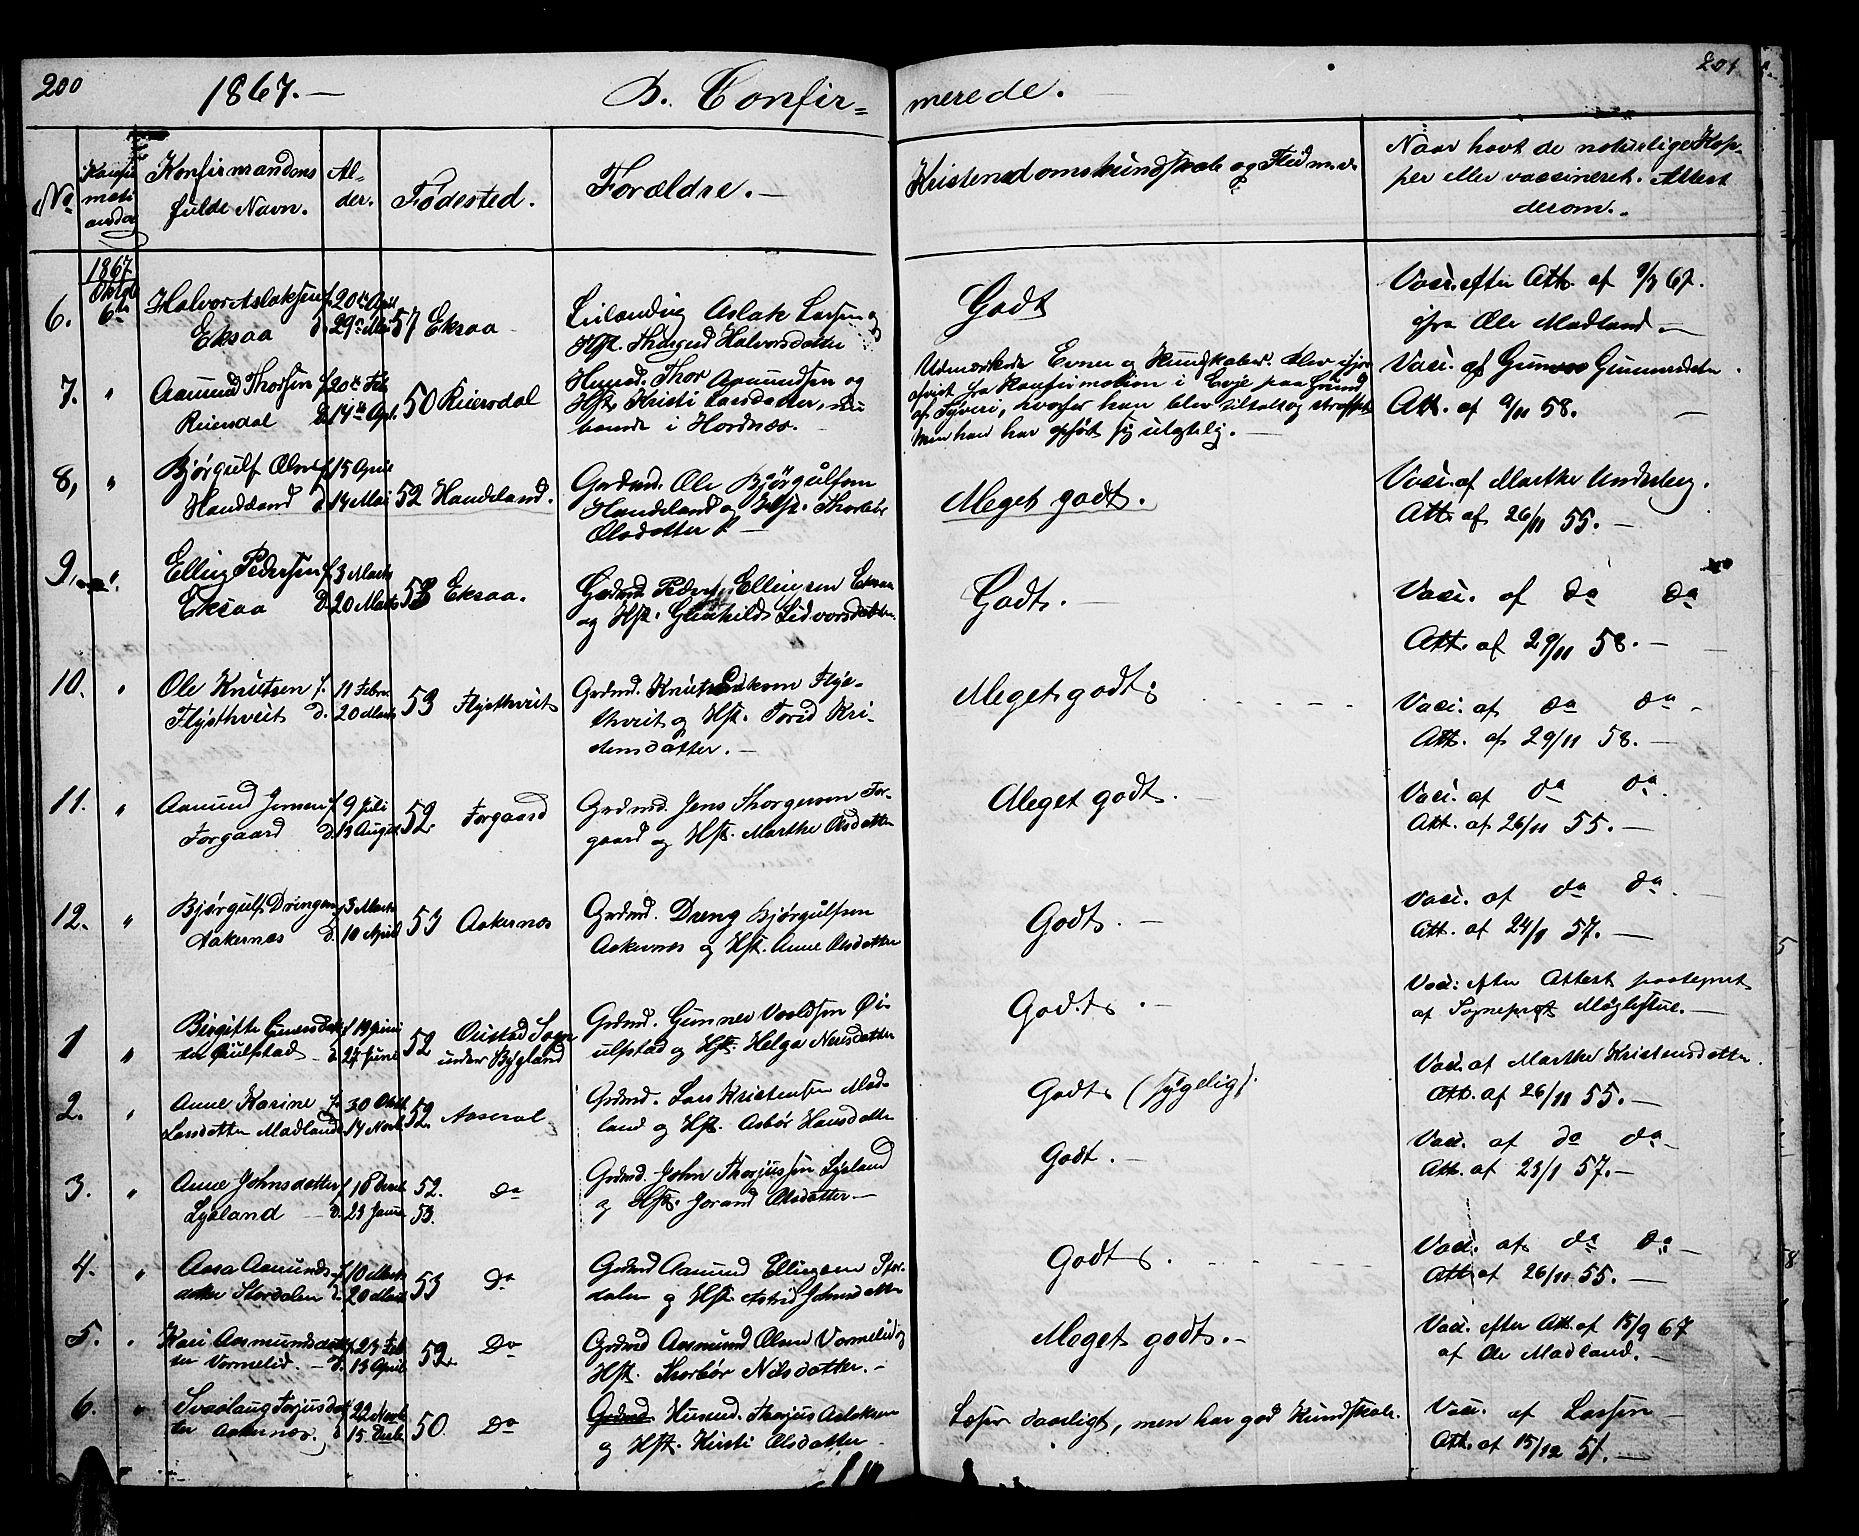 200
1867.—
B. Confir=
merede.
201
No
Konfirmationsdag
Konfirmandens fulde Navn.
Alder.
Fødested.
Forældre.—
Kristendomskundskab og Flid m. v.
Naar havt de naturlige Kopper eller vaccineret. Attest derom.
1867 Oktob 6te
6.
Halvor Aslaksen
Eksaa
f. 20de April
d. 29de Mai
57
Eksaa
Aslak Larsen og
Hst. Thorgerd Halvorsdatter
Godt
Vaci. efter Att. af 9/3 67.
fra Ole Madland.—
7.
"
Aamund Thorsen
Reiersdal
f. 20de Feb
d. 14de Apl.
50
Reiersdal
Husmd. Thor Aamundsen og
Hst. Kristi Larsdatter, nu
boende i Hordnæs.
Udmærkede Evner og Kundskaber. Blev ifjor
afvist fra Konfirmation i Evje paa Grund
af Tyveri, hvorfor han blev tiltalt og straffet
Men han har opført sig ulastelig.—
Vaci. af Gunvor Gunnersdatter.
Att. af 9/11 58.—
8,
"
Bjørgulf Olsen
Handeland
f. 15 April
d. 14 Mai
52
Handeland.
Grdmd. Ole Bjørgulfsen
Handeland og Hst. Thorbør
Olsdatter.—
Meget godt.
Vaci. af Marthe Underberg.
Att. af 26/11 55.—
9,
"
Elling Pedersen
Eksaa
f. 3 Marts
d. 20 Marts
53
Eksaa.
Grdmd Peder Ellingsen Eksaa
og Hst. Gunhild Sidvorsdatter.
Godt.—
Vaci. af do do
Att. af 29/11 58.—
10.
"
Ole Knutsen
Flysthveit
f. 11 Febru
d. 20 Marts
53
Flystveit
Grdmd. Knut Eriksen Flys-
thveit og Hst. Torid Kri-
stensdatter.—
Meget godt.
Vaci. af do do
Att. af 29/11 58.—
11.
"
Aamund Jensen
Forgaard
f. 9 Juli
d. 13 August
52.
Forgaard
Grdmd. Jens Thorgersen For-
gaard og Hst. Marthe Olsdatter
Meget godt.—
Vaci. af do do.
Att. af 26/11 55.—
12.
"
Bjørgulf Drengsen
Aakernæs
f. 3 Marts
d. 10 April
53
Aakernæs
Grdmd. Dreng Bjørgulfsen
Aakernæs og Hst. Anne Olsdatter
Godt.—
Vaci. af do do.
Att. af 24/1 57.—
1
"
Birgitte Gunnersdat-
ter Øiulfstad
f. 19 Juni
d. 27 Juni
52
Østad Sogn
under Bygland
Grdmd. Gunner Øi-
ulfstad og Hst. Helga Nerisdatter
Godt.—
Vaci. efter Attest paategnet
af Sogneprest Møglestue.—
2.
"
Anne Karine
Larsdatter Madland
f. 30 Oktb
d. 14 Novb
52.
Aaseral
Grdmd. Lars Kristensen Mad-
land og Hst. Asbør Hansdatter
Godt (sygelig).
Vaci. af Marthe Kristensdatter.
Att. af 26/11 55.—
3.
"
Anne Johnsdatter
Lysland
f. 18 Decbr
d. 23 Janu
52.
53.
Do
Grdmd. John Thorjussen Lysland
og Hst. Jorand Olsdatter—
Godt.—
Vaci. af do do.
Att. af 23/1 57.—
4.
"
Aasa Aamunds-
datter Stordalen
f. 10 Marts
d. 20 Marts
53
Do
Grdmd Aamund Ellingsen Stor-
dalen og Hst. Astrid Johnsdatter
Godt.
Vaci. af do do—
Att. af 26/11 55.—
5.
"
Kari Aasmundsdat-
ter Vormelid.—
f. 23 Feb
d. 13 April
52.
Do
Grdmd Aasmund Olsen Vormelid og
Hst. Thorbør Nilsdatter.—
Meget godt.—
Vaci. efter Att. af 15/9 67
af Ole Madland.—
6.
"
Svaalaug Torjusdat-
ter Aakernæs.
f. 22 Novb
d. 15 Decb
50.
Do
Grdmd Husmd. Thorjus Aslaksen
og Hst. Kirsti Olsdatter
Læser daarligt, men har god Kundskab.
Vaci. af Larsen—
Att. af 15/12 51.—